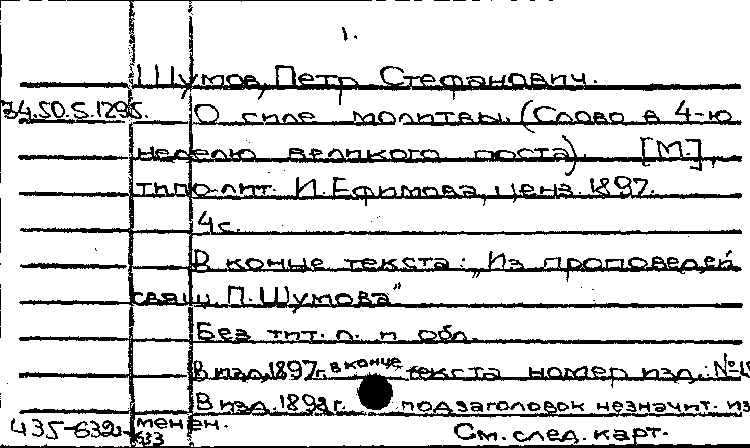 1.
Шумов, Петр Стефанович.
34.50.5.1295. О силе молитвы. (Слово в 4-ю
неделю великого поста). [М.],
типо-лит. И. Ефимова, ценз. 1897.
4 с.
В конце текста: „Из проповедей
свящ. П. Шумова"
Без тит. л. и обл.
В изд. 1897 г. в конце текста номер изд.:
В изд. 1898 г. подзаголовок незначит. из
менен.
435-632
633
См. след. карт.